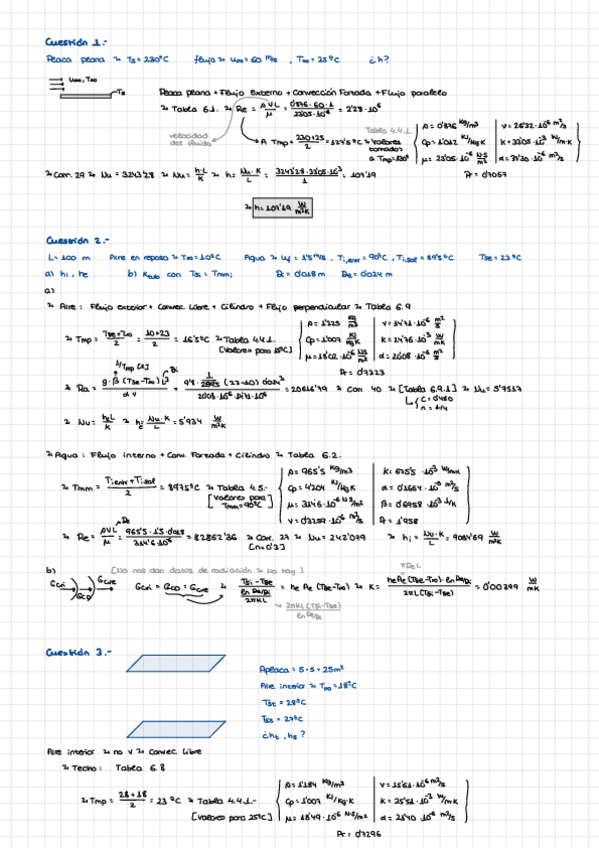 Cuestión 1.-
Placa plana → Ts = 230°C   flujo → u∞ = 60 m/s , T∞ = 25°C   ¿h?
u∞, T∞
Ts
Placa plana + Flujo Externo + Convección Forzada + Flujo paralelo
→ Tabla 6.1. → Re = ρVL/μ = 0'876·60·1/23'05·10⁻⁶ = 2'28·10⁶
velocidad del fluido
A Tmp = 230+25/2 = 127'5°C → Valores tomados a Tmp = 130°
Tabla 4.4.1
ρ = 0'876 kg/m³   v = 26'32·10⁻⁶ m²/s
Cp = 1'012 kJ/kgK   k = 33'05·10⁻³ W/m·K
μ = 23'05·10⁻⁶ N·S/m²   α = 37'30·10⁻⁶ m²/s
Pr = 0'7057
→ Corr. 29 → Nu = 3243'28 → Nu = h·L/K → h = Nu·K/L = 3243'28·33'05·10⁻³/1 = 107'19
→ h = 107'19 W/m²K
Cuestión 2.-
L = 100 m   Aire en reposo → T∞ = 10°C   Agua → uf = 1'5 m/s , Ti,entr = 90°C , Ti,sal = 89'5°C   Tse = 23°C
a) hi , he   b) Ktubo con Tsi = Tmm;   Di = 0'018 m   De = 0'024 m
a)
→ Aire : Flujo exterior + Convec. Libre + Cilindro + Flujo perpendicular → Tabla 6.9
→ Tmp = Tse+T∞/2 = 10+23/2 = 16'5°C → Tabla 4.4.1. [Valores para 15°C]
ρ = 1'225 kg/m³   v = 14'71·10⁻⁶ m²/s
Cp = 1'007 kJ/kgK   K = 24'76·10⁻³ W/mK
μ = 18'02·10⁻⁶ N·S/m²   α = 20'08·10⁻⁶ m²/s
Pr = 0'7323
1/Tmp [K]
→ Ra = g·β (Tse-T∞) De³/αv = 9'8·(23-10) 0'024³/20'08·10⁻⁶ 14'71·10⁻⁶ = 20616'79 → Corr 40 → [Tabla 6.9.1] → Nu = 5'7517
C = 0'480
n = 1/4
→ Nu = heL/K → he = Nu·K/L = 5'934 W/m²K
→ Agua : Flujo Interno + Conv. Forzada + Cilindro → Tabla 6.2.
→ Tmm = Ti,entr + Ti,sal/2 = 89'75°C → Tabla 4.5.- [Valores para Tmm = 90°C]
ρ = 965'5 kg/m³   K = 675'5·10⁻³ W/mK
Cp = 4'204 kJ/kgK   α = 0'1664·10⁻⁶ m²/s
μ = 314'6·10⁻⁶ N·S/m²   β = 0'6958·10⁻³ 1/K
v = 0'3259·10⁻⁶ m²/s   Pr = 1'958
→ Re = ρVL/μ = 965'5·1'5·0'018/314'6·10⁻⁶ = 82862'36 → Corr. 27. → Nu = 242'079 → hi = Nu·K/L = 9084'69 W/m²K
[n = 0'3]
b)   [No nos dan datos de radiación → No hay]
Gcvi   Gcve
Gcd
Gcvi = Gcd = Gcve → Tsi - Tse/ln De/Di/2πKL = he Ae (Tse-T∞) → K = he Ae (Tse-T∞)·ln De/Di/2πL (Tsi-Tse) = 0'00399 W/mK
πDeL
2πKL (Tsi-Tse)/ln De/Di
Cuestión 3.-
Aplaca = 5·5 = 25m²
Aire interior → T∞ = 18°C
Tst = 28°C
Tss = 27°C
¿ht , hs ?
Aire interior → no v → Convec. Libre
→ Techo : Tabla 6.8
→ Tmp = 28+18/2 = 23 °C → Tabla 4.4.1.- [Valores para 25°C]
ρ = 1'184 kg/m³   v = 15'61·10⁻⁶ m²/s
Cp = 1'007 kJ/kg·K   K = 25'51·10⁻³ W/mK
μ = 18'49·10⁻⁶ N·S/m²   α = 21'40·10⁻⁶ m²/s
Pr = 0'7296